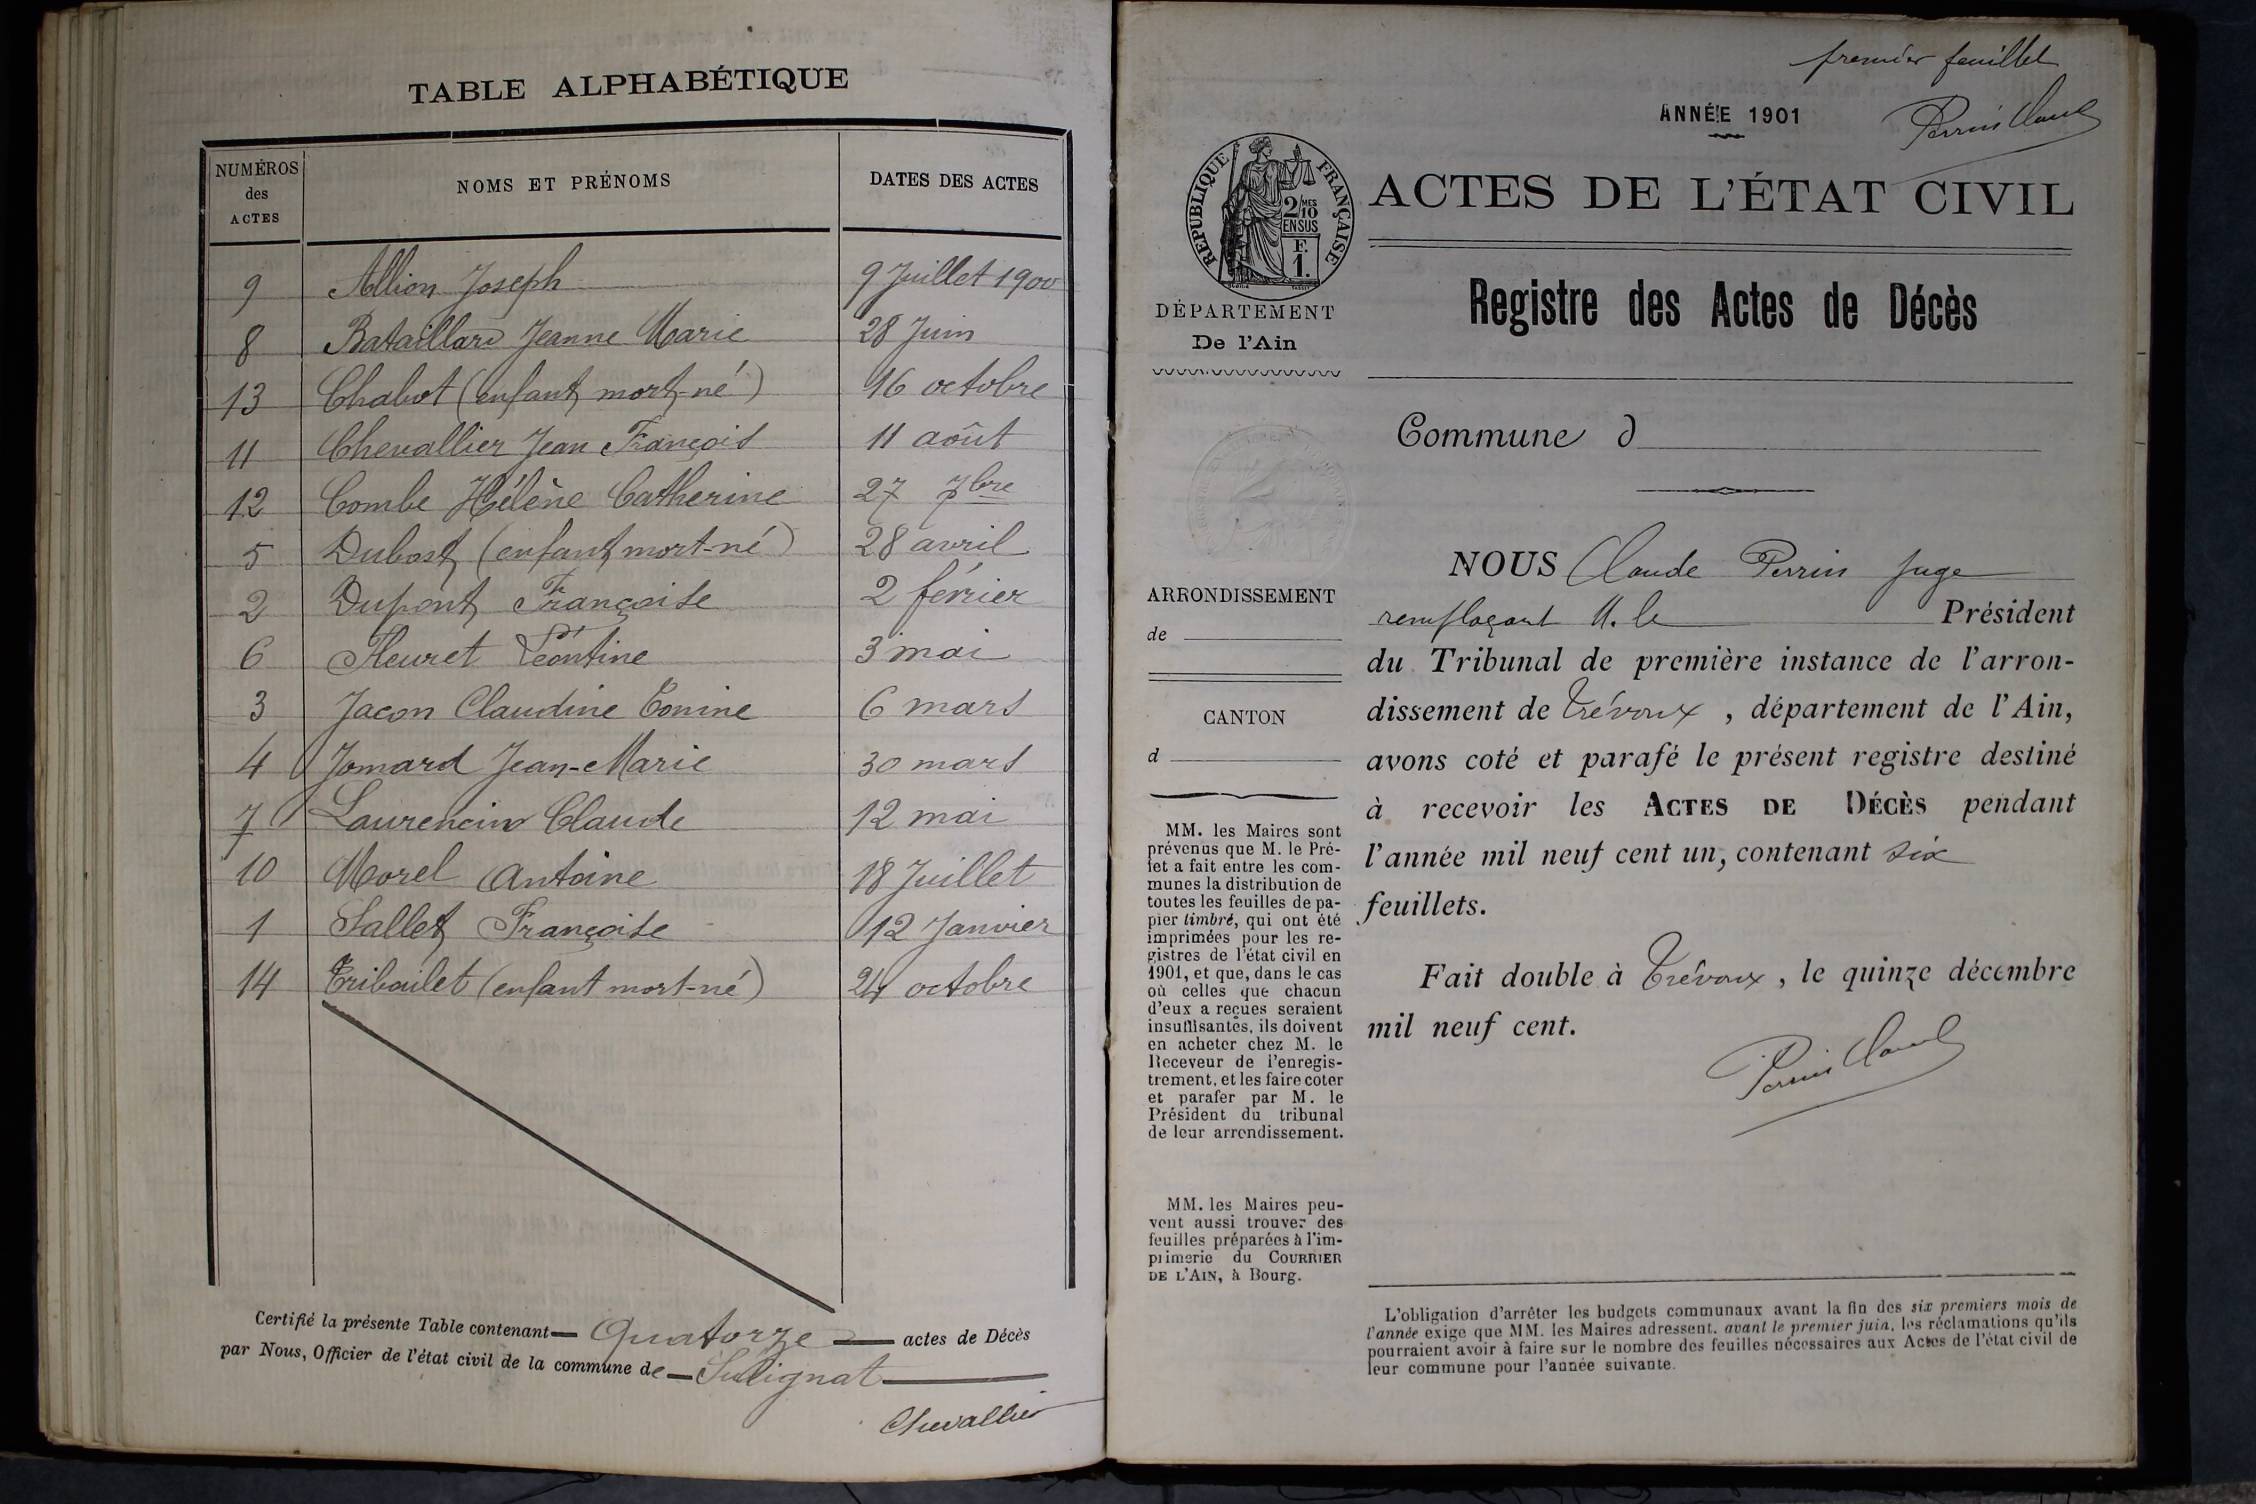 TABLE ALPHABÉTIQUE
NUMÉROS des ACTES NOMS ET PRÉNOMS DATES DES ACTES
9 Allion Joseph 9 Juillet 1900
8 Bataillard Jeanne Marie 28 Juin
13 Chabot (enfant mort-né) 16 octobre
11 Chevallier Jean François 11 août
12 Combe Hélène Catherine 27 7bre
5 Dubost (enfant mort-né) 28 avril
2 Dupont Françoise 2 février
6 Fleuret Léontine 3 mai
3 Jacon Claudine Tonine 6 mars
4 Jomard Jean-Marie 30 mars
7 Laurencin Claude 12 mai
10 Morel Antoine 18 Juillet
1 Sallet Françoise 12 Janvier
14 Tribailet (enfant mort-né) 24 octobre
Certifié la présente Table contenant Quatorze actes de Décès
par Nous, Officier de l'état civil de la commune de Sulignat
Chevallier
premier feuillet
Perrin Claude
ANNÉE 1901
RÉPUBLIQUE FRANÇAISE
2/10 MES
EN SUS
F.
1.
ACTES DE L'ÉTAT CIVIL
Registre des Actes de Décès
DÉPARTEMENT
De l'Ain
Commune d
ARRONDISSEMENT
de
CANTON
d
MM. les Maires sont
prévenus que M. le Pré-
fet a fait entre les com-
munes la distribution de
toutes les feuilles de pa-
pier timbré, qui ont été
imprimées pour les re-
gistres de l'état civil en
1901, et que, dans le cas
où celles que chacun
d'eux a reçues seraient
insuffisantes, ils doivent
en acheter chez M. le
Receveur de l'enregis-
trement, et les faire coter
et parafer par M. le
Président du tribunal
de leur arrondissement.
MM. les Maires peu-
vent aussi trouver des
feuilles préparées à l'im-
primerie du COURRIER
DE L'AIN, à Bourg.
NOUS Claude Perrin juge
remplaçant M. le Président
du Tribunal de première instance de l'arron-
dissement de Trévoux, département de l'Ain,
avons coté et parafé le présent registre destiné
à recevoir les ACTES DE DÉCÈS pendant
l'année mil neuf cent un, contenant six
feuillets.
Fait double à Trévoux, le quinze décembre
mil neuf cent.
Perrin Claude
L'obligation d'arrêter les budgets communaux avant la fin des six premiers mois de
l'année exige que MM. les Maires adressent, avant le premier juin, les réclamations qu'ils
pourraient avoir à faire sur le nombre des feuilles nécessaires aux Actes de l'état civil de
leur commune pour l'année suivante.